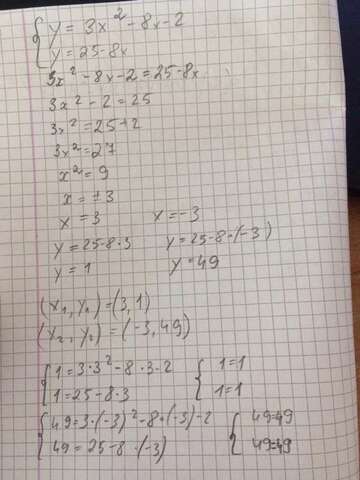 { y = 3x² - 8x - 2
y = 25 - 8x
3x² - 8x - 2 = 25 - 8x
3x² - 2 = 25
3x² = 25 + 2
3x² = 27
x² = 9
x = ±3
x = 3 x = -3
y = 25 - 8·3 y = 25 - 8·(-3)
y = 1 y = 49
(x₁, y₁) = (3, 1)
(x₂, y₂) = (-3, 49)
{ 1 = 3·3² - 8·3 - 2 { 1 = 1
1 = 25 - 8·3 1 = 1
{ 49 = 3·(-3)² - 8·(-3) - 2 { 49 = 49
49 = 25 - 8·(-3) 49 = 49